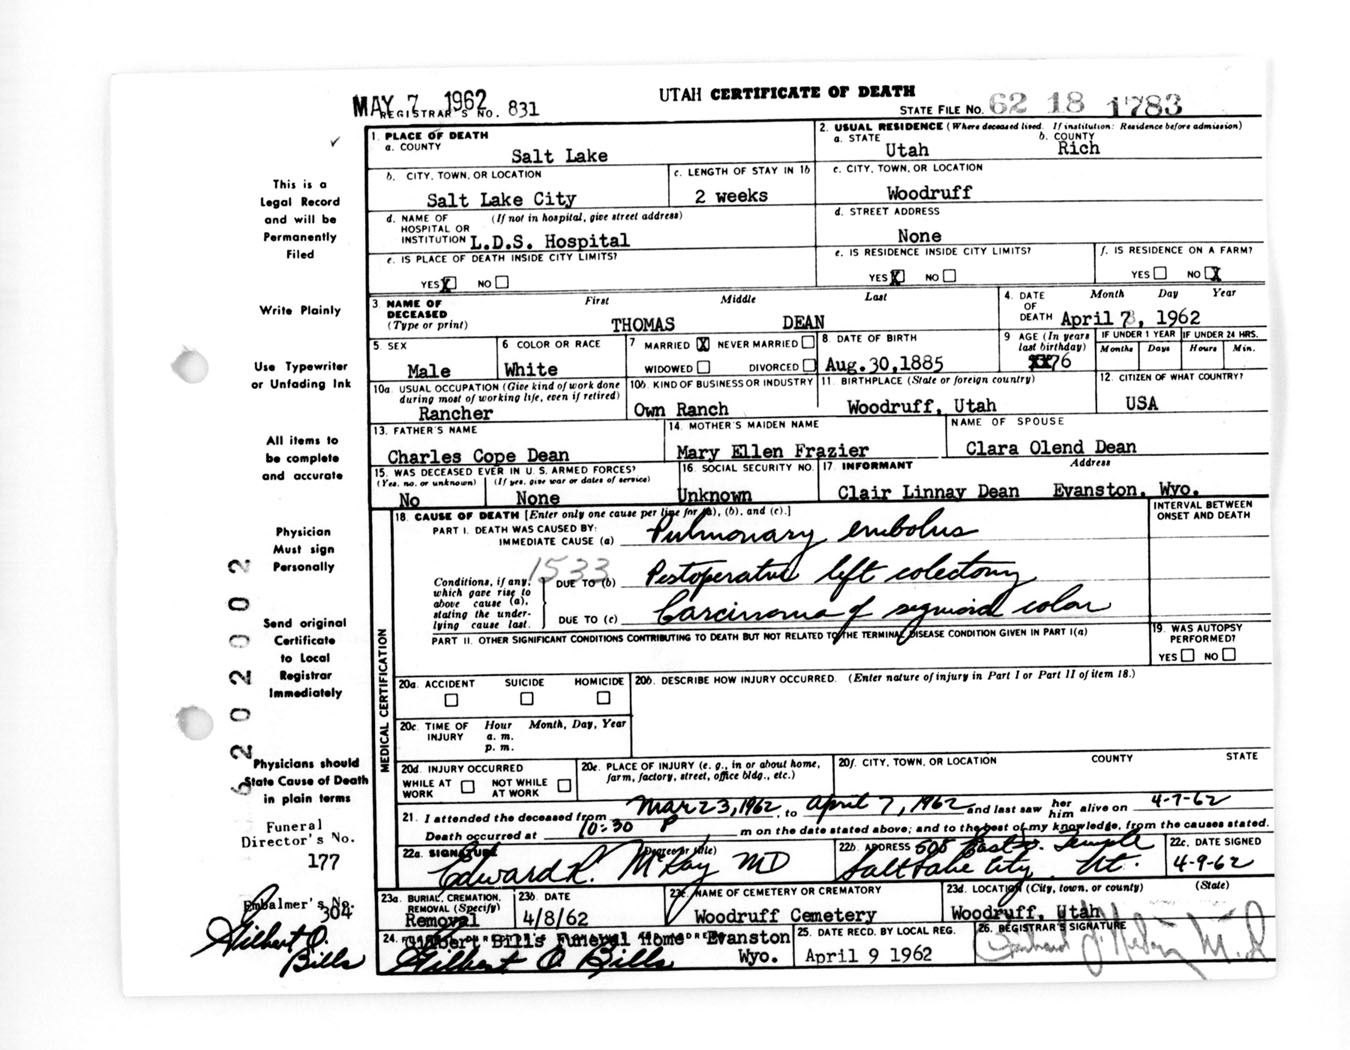 MAY 7 1962
REGISTRAR'S NO. 831
UTAH CERTIFICATE OF DEATH
STATE FILE NO. 62 18 1783
This is a
Legal Record
and will be
Permanently
Filed
Write Plainly
Use Typewriter
or Unfading Ink
All items to
be complete
and accurate
Physician
Must sign
Personally
Send original
Certificate
to Local
Registrar
Immediately
Physicians should
State Cause of Death
in plain terms
Funeral
Director's No.
177
Embalmer's No.
304
Gilbert O.
Bills
6202002
1. PLACE OF DEATH
a. COUNTY
Salt Lake
2. USUAL RESIDENCE (Where deceased lived. If institution: Residence before admission)
a. STATE
Utah
b. COUNTY
Rich
b. CITY, TOWN, OR LOCATION
Salt Lake City
c. LENGTH OF STAY IN 1b
2 weeks
c. CITY, TOWN, OR LOCATION
Woodruff
d. NAME OF HOSPITAL OR INSTITUTION (If not in hospital, give street address)
L.D.S. Hospital
d. STREET ADDRESS
None
e. IS PLACE OF DEATH INSIDE CITY LIMITS?
YES X NO
e. IS RESIDENCE INSIDE CITY LIMITS?
YES X NO
f. IS RESIDENCE ON A FARM?
YES NO X
3 NAME OF DECEASED (Type or print)
First Middle Last
THOMAS DEAN
4. DATE OF DEATH Month Day Year
April 7, 1962
5. SEX
Male
6 COLOR OR RACE
White
7 MARRIED X NEVER MARRIED
WIDOWED DIVORCED
8. DATE OF BIRTH
Aug. 30,1885
9 AGE (In years last birthday)
76
IF UNDER 1 YEAR
Months Days
IF UNDER 24 HRS.
Hours Min.
10a. USUAL OCCUPATION (Give kind of work done during most of working life, even if retired)
Rancher
10b. KIND OF BUSINESS OR INDUSTRY
Own Ranch
11. BIRTHPLACE (State or foreign country)
Woodruff, Utah
12. CITIZEN OF WHAT COUNTRY?
USA
13. FATHER'S NAME
Charles Cope Dean
14. MOTHER'S MAIDEN NAME
Mary Ellen Frazier
NAME OF SPOUSE
Clara Olend Dean
15. WAS DECEASED EVER IN U.S. ARMED FORCES?
(Yes, no, or unknown) (If yes, give war or dates of service)
No None
16. SOCIAL SECURITY NO.
Unknown
17. INFORMANT Address
Clair Linnay Dean Evanston, Wyo.
18. CAUSE OF DEATH [Enter only one cause per line for (a), (b), and (c).]
INTERVAL BETWEEN ONSET AND DEATH
MEDICAL CERTIFICATION
PART I. DEATH WAS CAUSED BY:
IMMEDIATE CAUSE (a) Pulmonary embolus
1533
Conditions, if any, which gave rise to above cause (a), stating the underlying cause last.
DUE TO (b) Postoperative left colectomy
DUE TO (c) Carcinoma of sigmoid colon
PART II. OTHER SIGNIFICANT CONDITIONS CONTRIBUTING TO DEATH BUT NOT RELATED TO THE TERMINAL DISEASE CONDITION GIVEN IN PART I(a)
19. WAS AUTOPSY PERFORMED?
YES NO
20a. ACCIDENT SUICIDE HOMICIDE
20b. DESCRIBE HOW INJURY OCCURRED. (Enter nature of injury in Part I or Part II of item 18.)
20c. TIME OF INJURY Hour Month, Day, Year
a. m.
p. m.
20d. INJURY OCCURRED
WHILE AT WORK NOT WHILE AT WORK
20e. PLACE OF INJURY (e. g., in or about home, farm, factory, street, office bldg., etc.)
20f. CITY, TOWN, OR LOCATION COUNTY STATE
21. I attended the deceased from Mar 23, 1962, to April 7, 1962 and last saw her him alive on 4-7-62
Death occurred at 10:30 P m on the date stated above; and to the best of my knowledge, from the causes stated.
22a. SIGNATURE (Degree or title)
Edward R. McKay MD
22b. ADDRESS 508 East So. Temple
Salt Lake City, Ut.
22c. DATE SIGNED
4-9-62
23a. BURIAL, CREMATION, REMOVAL (Specify)
Removal
23b. DATE
4/8/62
23c. NAME OF CEMETERY OR CREMATORY
Woodruff Cemetery
23d. LOCATION (City, town, or county) (State)
Woodruff, Utah
24.
Gilbert Bill's Funeral Home Evanston
Wyo.
Gilbert O. Bills
25. DATE RECD. BY LOCAL REG.
April 9 1962
26. REGISTRAR'S SIGNATURE